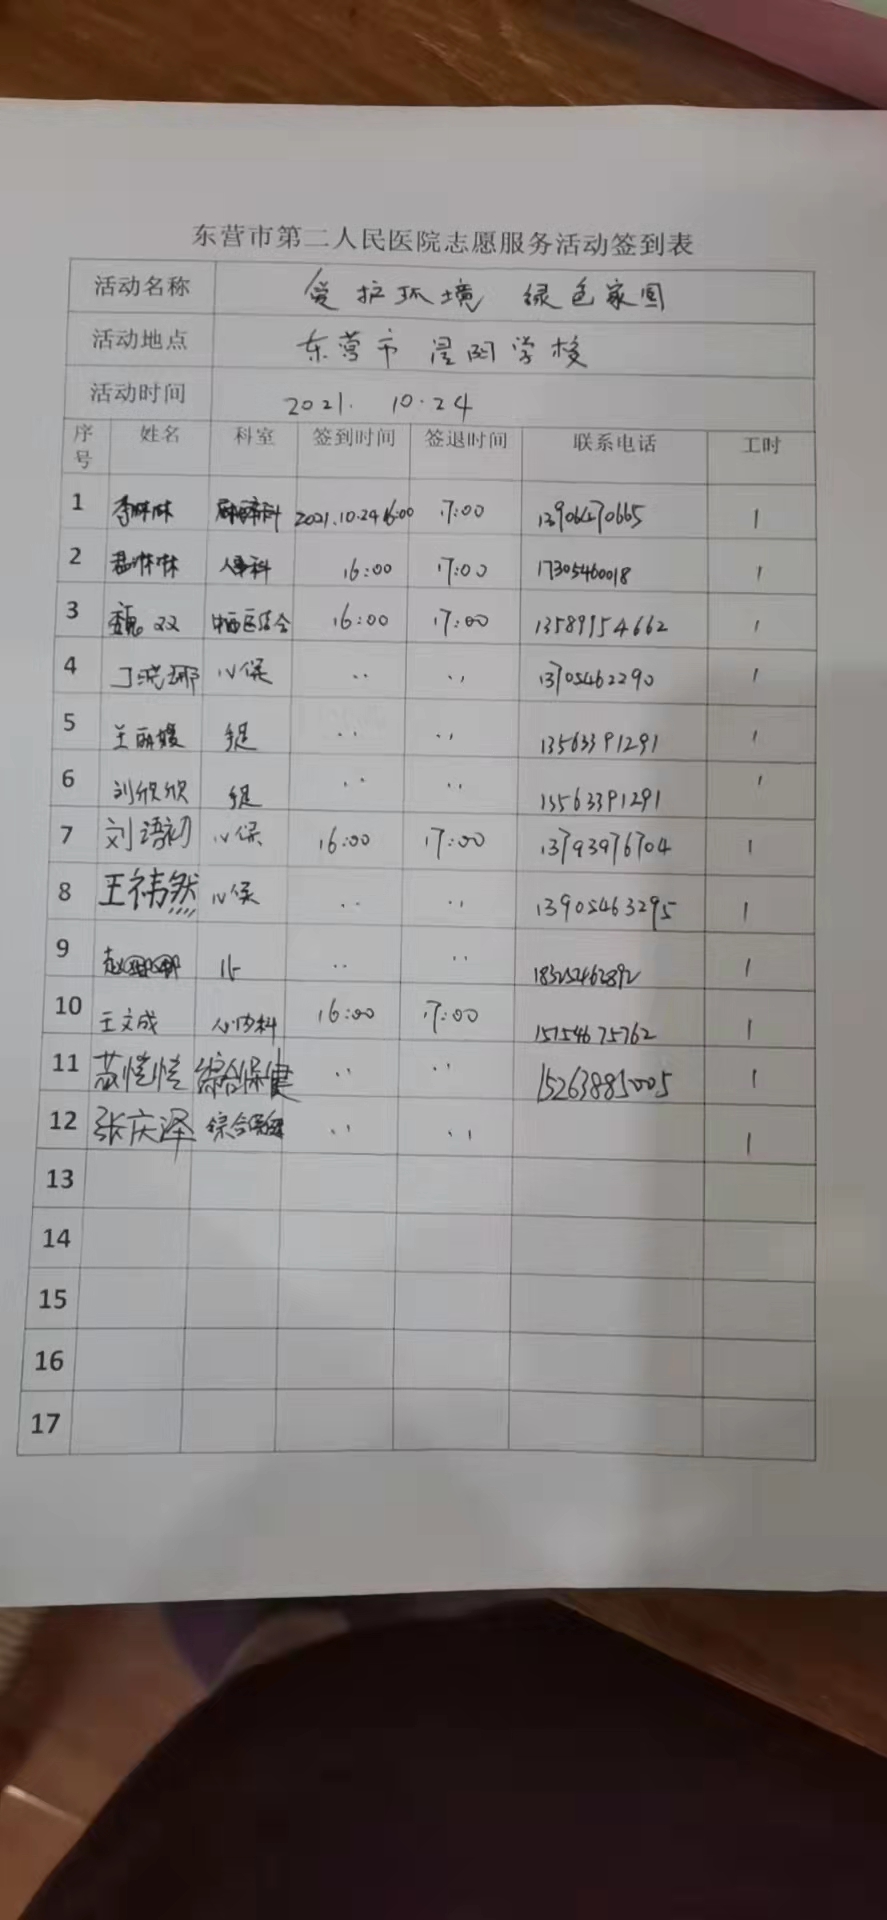 东营市第二人民医院志愿服务活动签到表
活动名称 爱护环境 绿色家园
活动地点 东营市 学校
活动时间 2021. 10.24
序号 姓名 科室 签到时间 签退时间 联系电话 工时
1 李 2021.10.24 16:00 17:00 13906470665 1
2 人事科 16:00 17:00 17305460018 1
3 魏双 中西医结合 16:00 17:00 13589954662 1
4 丁 心保 ·· ·· 13705462290 1
5 王丽媛 ·· ·· 13563391291 1
6 刘欣欣 ·· ·· 13563391291 1
7 刘语初 心保 16:00 17:00 13793976704 1
8 王祎然 心保 ·· ·· 13905463295 1
9 赵 ·· ·· 1
10 王文成 心内科 16:00 17:00 15154675762 1
11 综合保健 ·· ·· 15263885005 1
12 张庆泽 综合保健 ·· ·· 1
13
14
15
16
17